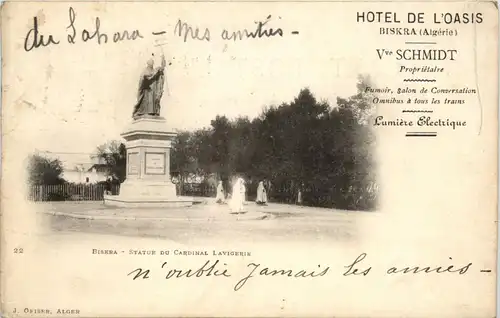 du Sahara - Mes amitiés -
HOTEL DE L'OASIS
BISKRA (Algérie)
Vve SCHMIDT
Propriétaire
Fumoir, Salon de Conversation
Omnibus à tous les trains
Lumière Electrique
22
BISKRA - STATUE DU CARDINAL LAVIGERIE
n'oublie Jamais les amies -
J. GEISER, ALGER